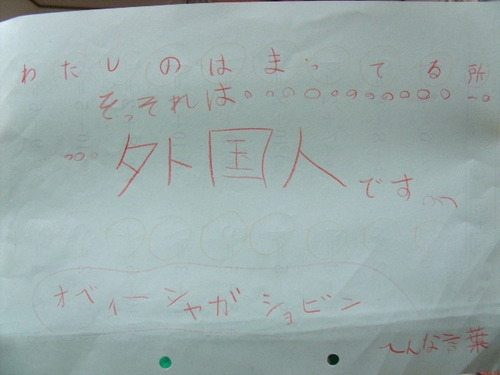 わたしのはまってる所
そっそれは。。。。。。。。。。。。
。。。外国人です。。。
オベィーシャガショビン
へんな言葉